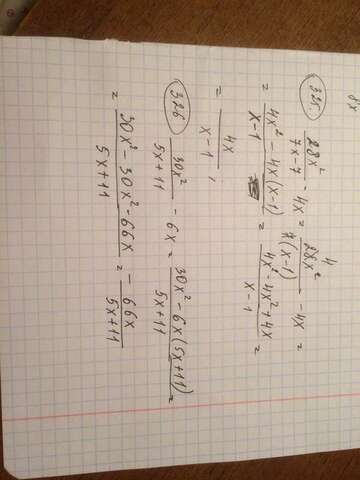 8x
325. 28x²/(7x-7) - 4x = 28x²/7(x-1) - 4x =
4
= (4x² - 4x(x-1))/(x-1) = (4x² - 4x² + 4x)/(x-1) =
= 4x/(x-1) ;
326 30x²/(5x+11) - 6x = (30x² - 6x(5x+11))/(5x+11) =
= (30x² - 30x² - 66x)/(5x+11) = -66x/(5x+11)